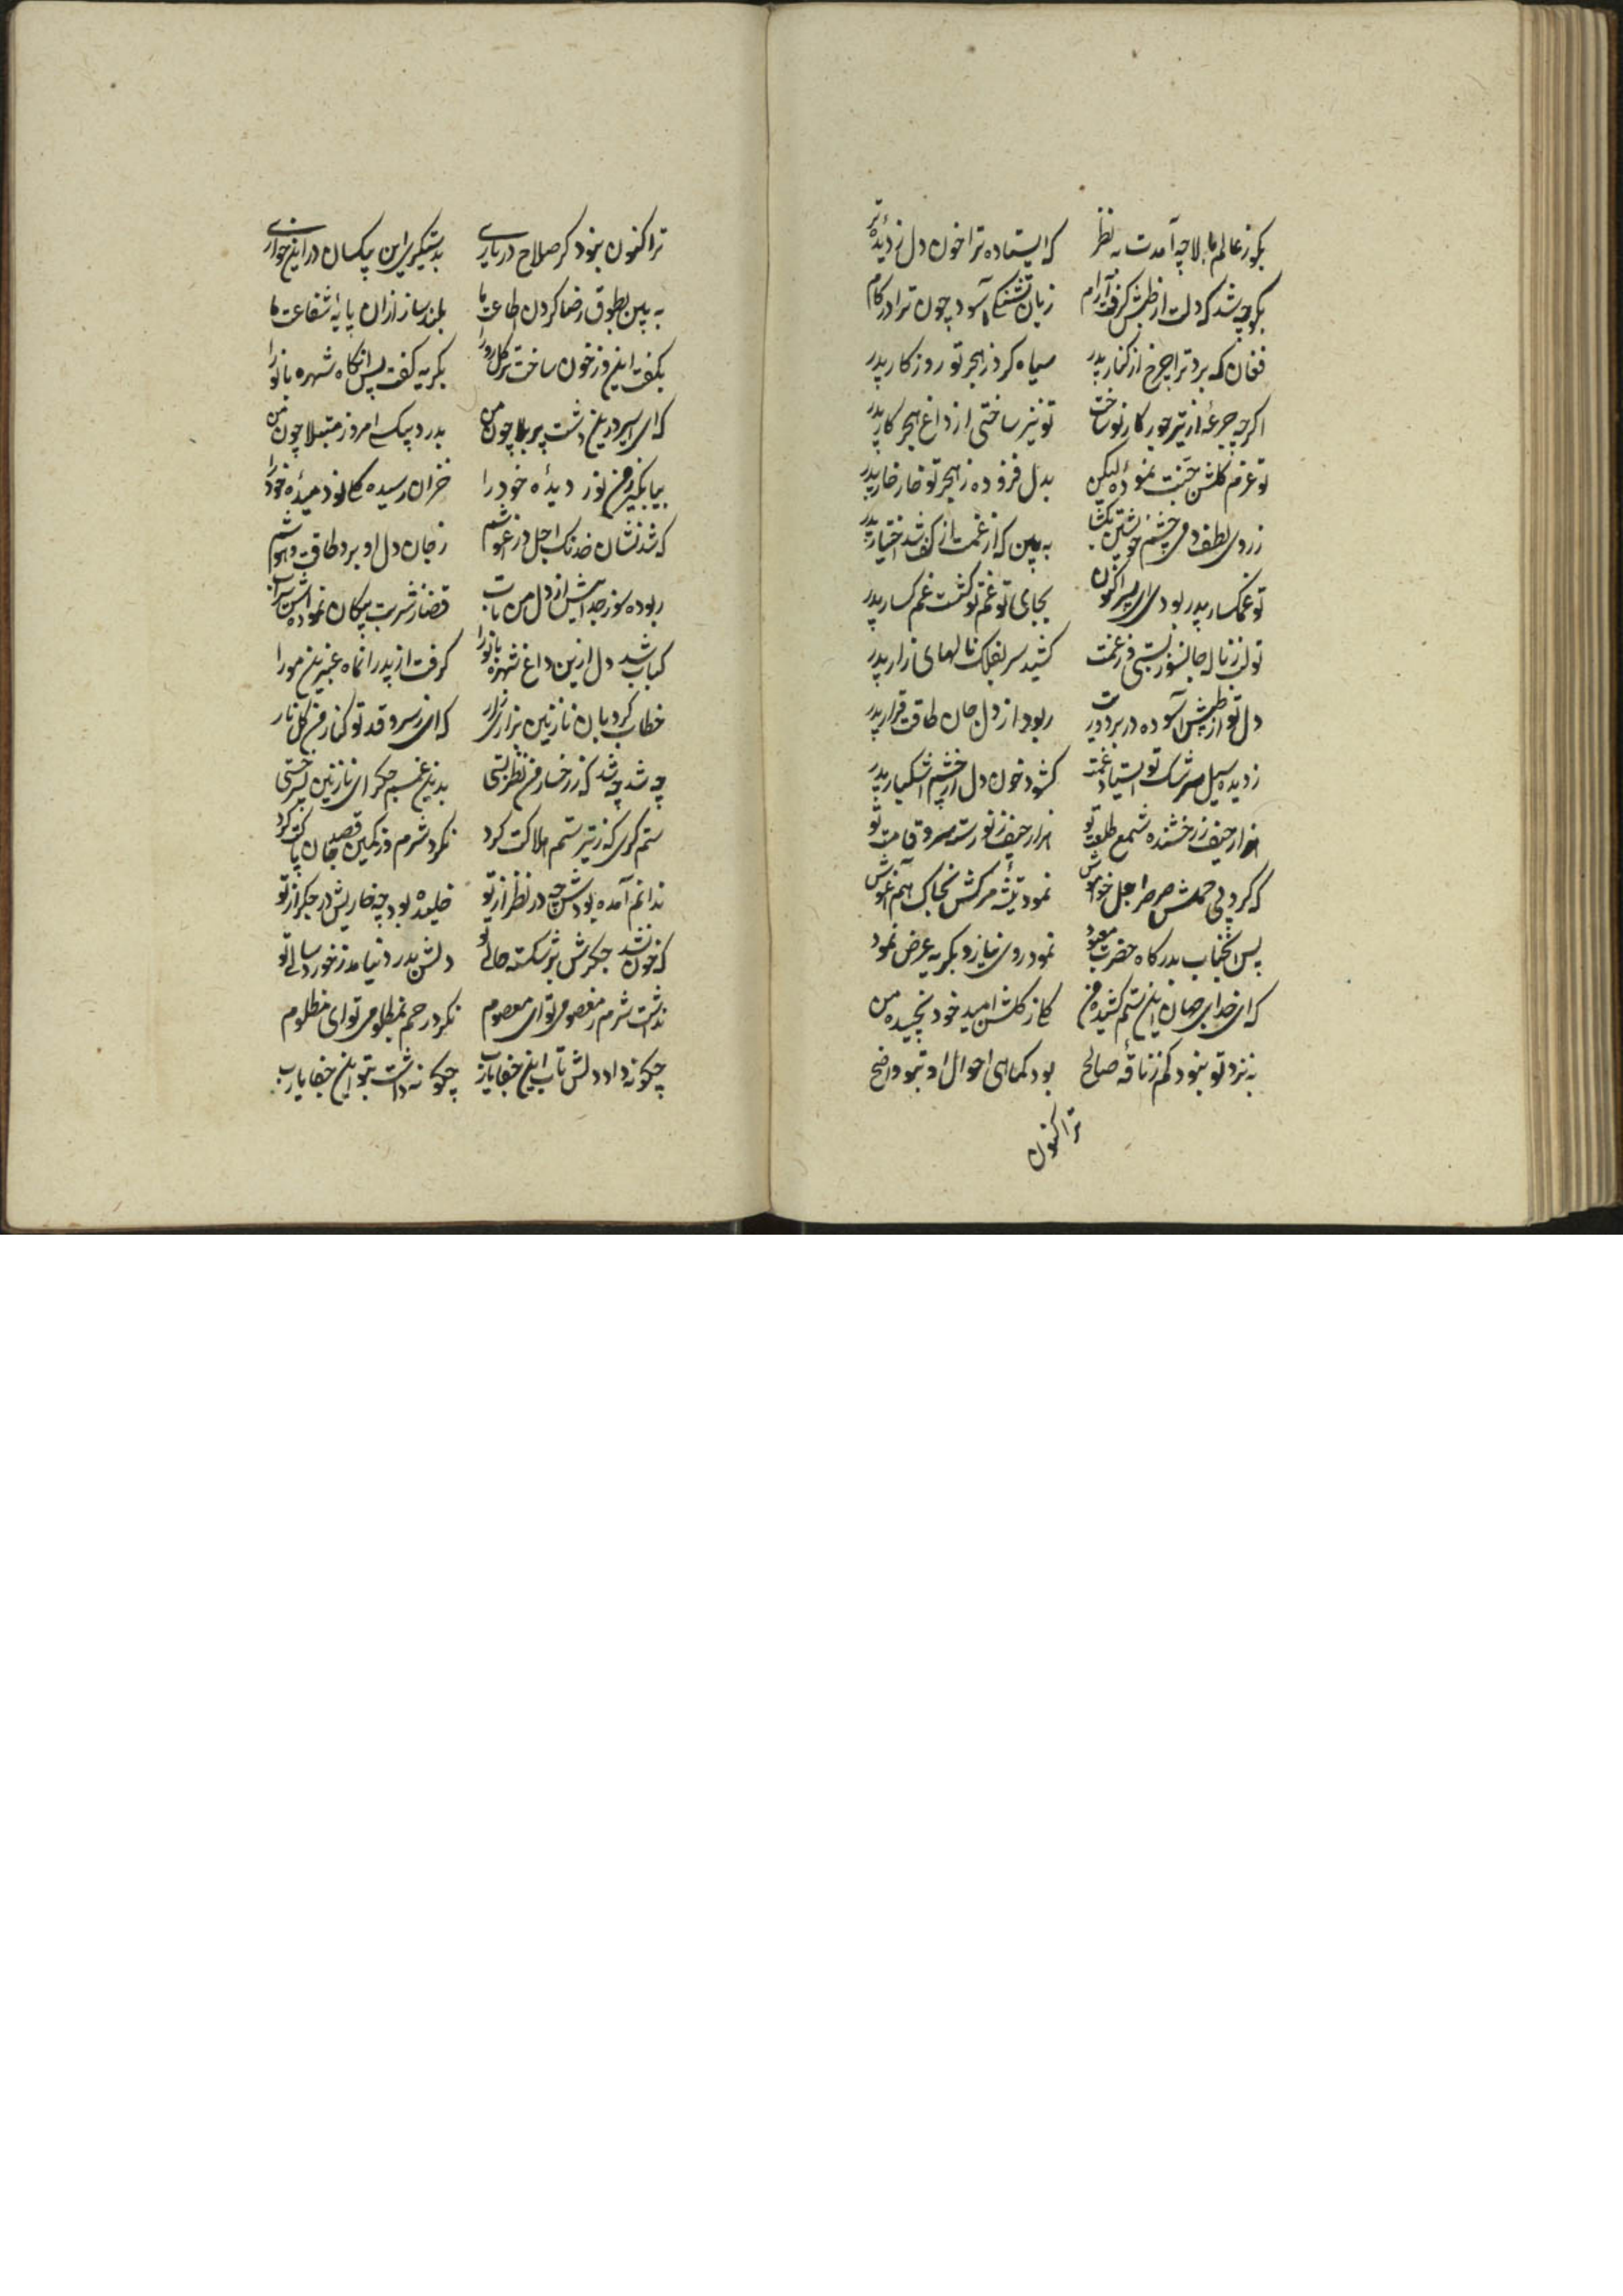 بکو ز عالم بالا چه آمدت به نظر که ایستاده ترا خون دل ز دیدهٔ تر
بکو چه شد که دلت از طپش کرفت آرام زبان تشنکی آسود چون ترا در کام
فغان که برد ترا چرخ از کنار پدر سیاه کرد ز هجر تو روزکار پدر
اکرچه جرعهٔ از تیر جور کار تو ساخت تو نیز ساختی از داغ هجر کار پدر
تو عزم کلشن جنت نمودهٔ لیکن بدل فزوده ز هجر تو خار خار پدر
ز روی لطف دمی چشم خویشتن بکشا به بین که از غمت از کف شد اختیار پدر
تو غمکسار پدر بودی ای پسر اکنون بجای تو غم تو کشت غمکسار پدر
تو لب ز نالهٔ جانسوز بستی و ز غمت کشید سر بفلک نالهای زار پدر
دل تو از طپش آسوده در برو دردت ربود از دل و جان طاقت و قرار پدر
ز دیده سیل سرشک تو ایستاد و غمت کشود خون دل از چشم اشکبار پدر
هزار حیف ز رخشنده شمع طلعت تو هزار حیف ز نورسته سرو قامت تو
که کرد بی محلش صرصر اجل خواموش نمود تیشهٔ مرکش بخاک هم آغوش
پس آنجناب بدرکاه حضرت معبود نمود روی نیاز و بکریه عرض نمود
که ای خدا بر جان این ستم کشیدهٔ من کل ز کلشن امید خود نچیدهٔ من
به نزد تو نبود کم ز ناقهٔ صالح بود کماهی احوال او بتو واضح
ترا کنون
ترا کنون نبود کر صلاح در یاری بدستکیری این بیکسان در این خواری
به بین بطوق رضا کردن اطاعت ما بلند ساز ازان پایهٔ شفاعت ما
بکفت این و ز خون ساخت پرکل رو را بکریه کفت پس آنکاه شهربانو را
که ای اسیر درین دشت پر بلا چون من بدرد بیکسی امروز مبتلا چون من
بیا بکیر ز من نور دیدهٔ خود را خزان رسیده کل نو دمیدهٔ خود را
که شد نشان خدنک اجل در آغوشم ز جان و دل او برد طاقت و هوشم
ربوده سوز جدائیش از دل من تاب قضا ز شربت پیکان نموده اش سیراب
کباب شد دل ازین داغ شهربانو را کرفت از پدر آنماه عنبرین مو را
خطاب کرد بآن نازنین بزاری زار که ای ز سرو قد تو کنار من کلنار
چه شد چه شد که ز رخسار من نظر بستی بدین غمم جکر ای نازنین پسر خستی
ستم کری که ز تیر ستم هلاکت کرد نکرد شرم و ز کین قصد جان پاکت کرد
ندانم آمده بودش چه در نظر از تو خلیده بود چه خاریش در جکر از تو
که خون نشد جکرش بر شکسته حالی تو دلش بدرد نیامد ز خوردسالی تو
نداشت شرم ز معصومی تو ای معصوم نکرد رحم بمظلومی تو ای مظلوم
چکونه داد دلش تاب این جفا یارب چکونه داشت بتو این جفا یارب